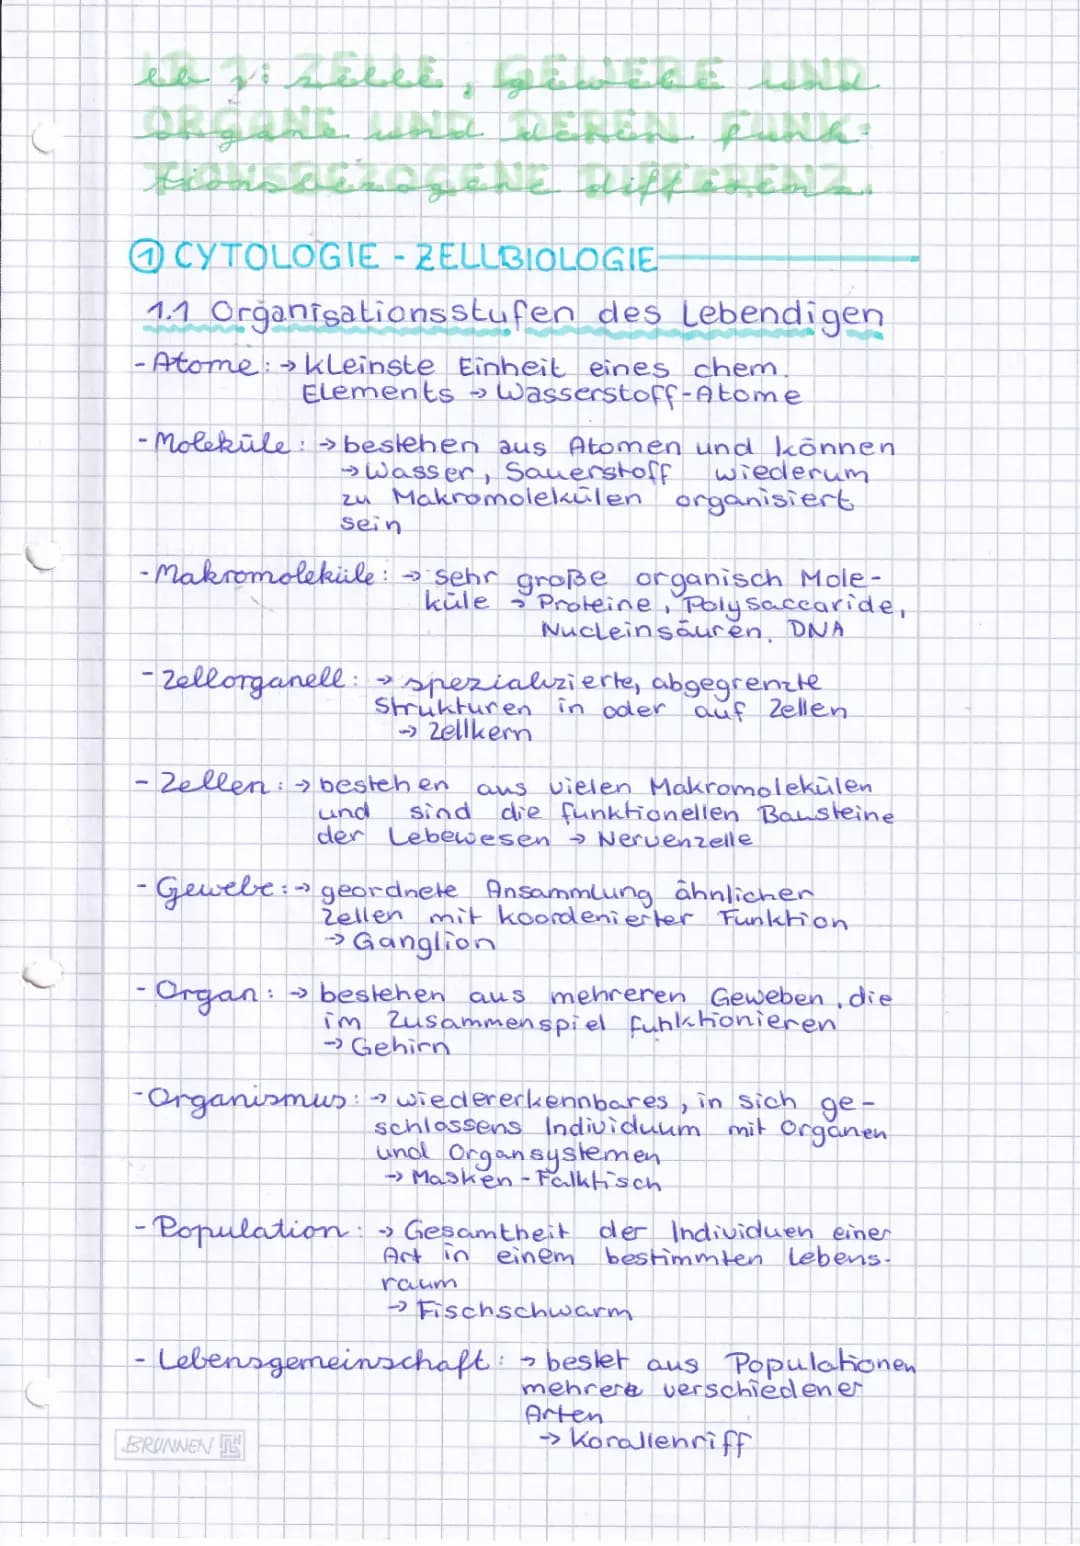 LB 1: ZELLE, GEWEBE UND
ORGANE UND DEREN FUNK-
TIONSBEZOGENE DIFFERENZ.
① CYTOLOGIE - ZELLBIOLOGIE
1.1 Organisationsstufen des Lebendigen
- Atome: → kleinste Einheit eines chem.
Elements → Wasserstoff-Atome
- Moleküle: → bestehen aus Atomen und können
→ Wasser, Sauerstoff wiederum
zu Makromolekülen organisiert
sein
- Makromoleküle: → sehr große organisch Mole-
küle → Proteine, Polysaccaride,
Nucleinsäuren, DNA
- Zellorganell: → spezializierte, abgegrenzte
Strukturen in oder auf Zellen
→ Zellkern
- Zellen: → bestehen aus vielen Makromolekülen
und sind die funktionellen Bausteine
der Lebewesen → Nervenzelle
- Gewebe: → geordnete Ansammlung ähnlicher
Zellen mit koordenierter Funktion
→ Ganglion
- Organ: → bestehen aus mehreren Geweben, die
im Zusammenspiel funktionieren
→ Gehirn
- Organismus: → wiedererkennbares, in sich ge-
schlossens Individuum mit Organen
und Organsystemen
→ Masken - Falktisch
- Population: → Gesamtheit der Individuen einer
Art in einem bestimmten Lebens-
raum
→ Fischschwarm
- Lebensgemeinschaft: → bestet aus Populationen
mehrere verschiedener
Arten
→ Korallenriff
BRUNNEN